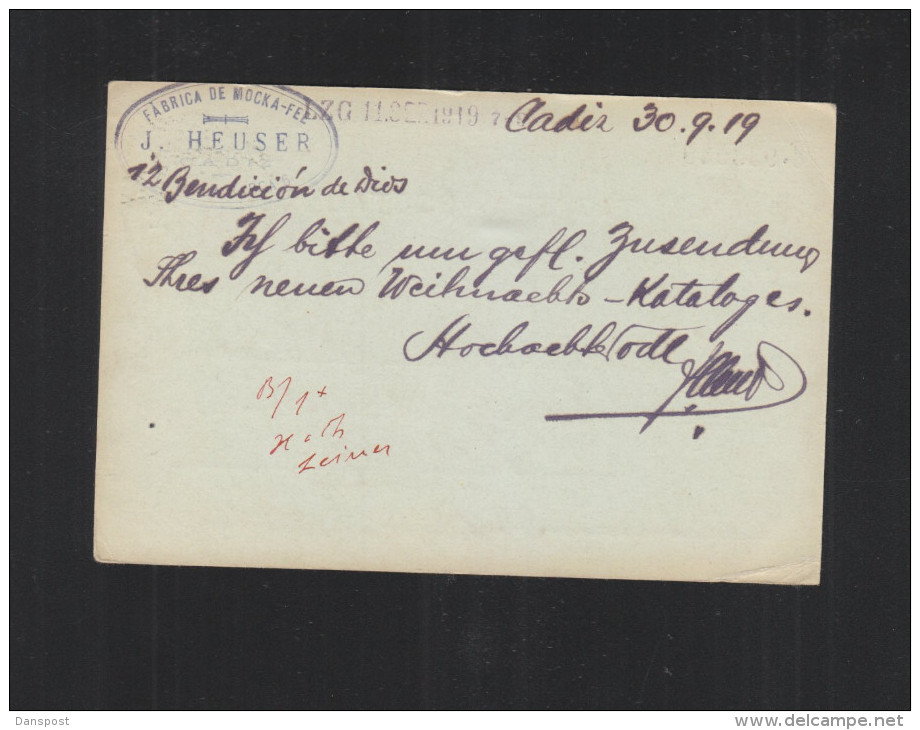 FÁBRICA DE MOCKA-FEE
J. HEUSER
LZG 11. 1919 7
Cadiz 30.9.19
12 Bendición de Dios
Ich bitte um gefl. Zusendung
Ihres neuen Weihnachts-Kataloges.
Hochachtungsvoll
B/ 1+
Danspost
www.delcampe.net